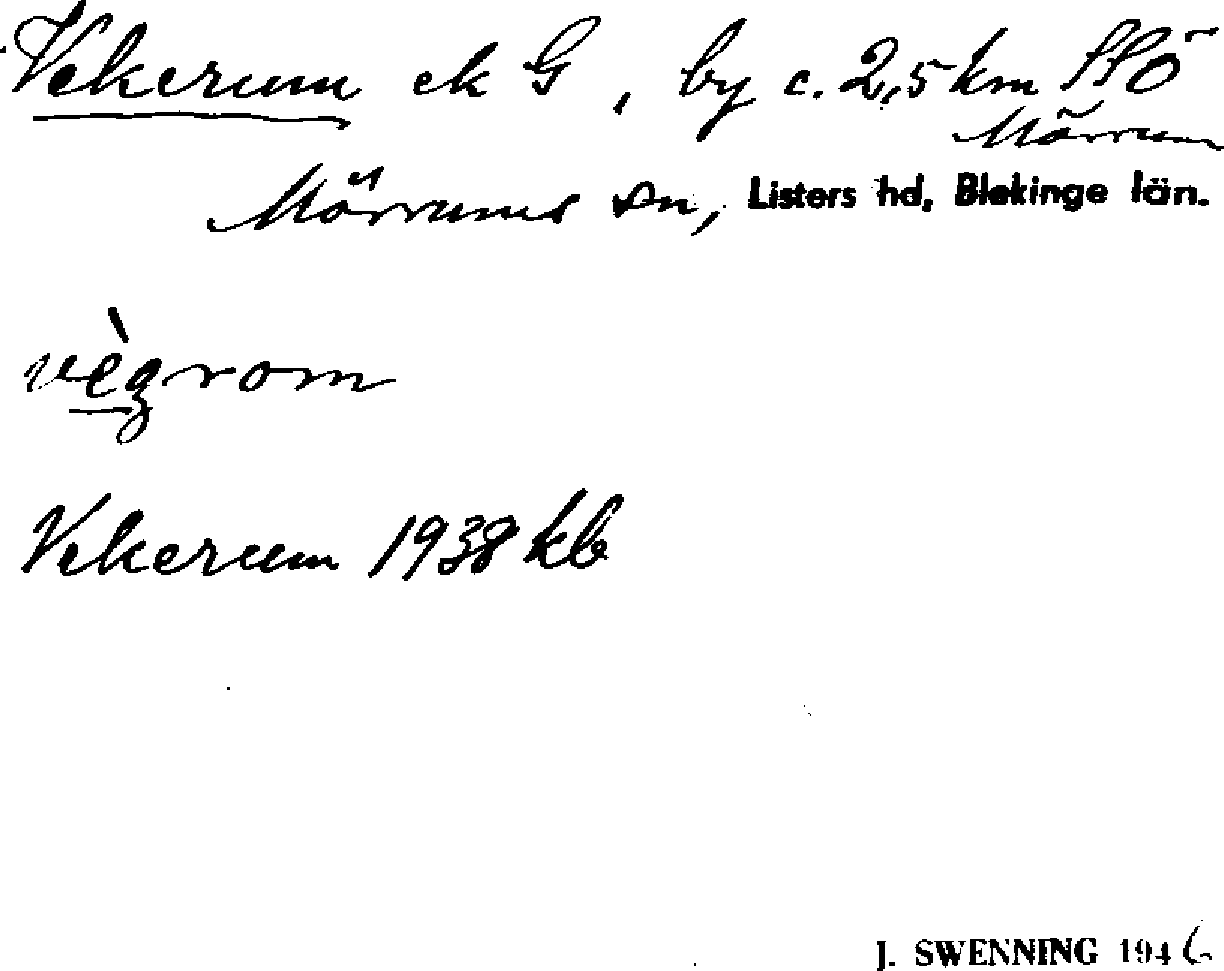 Vekerum ek G, by c. 2,5 km SSÖ
Mörrum
Mörrums sn, Listers hd, Blekinge län.
vègrom
Vekerum 1938 kb
J. SWENNING 1946